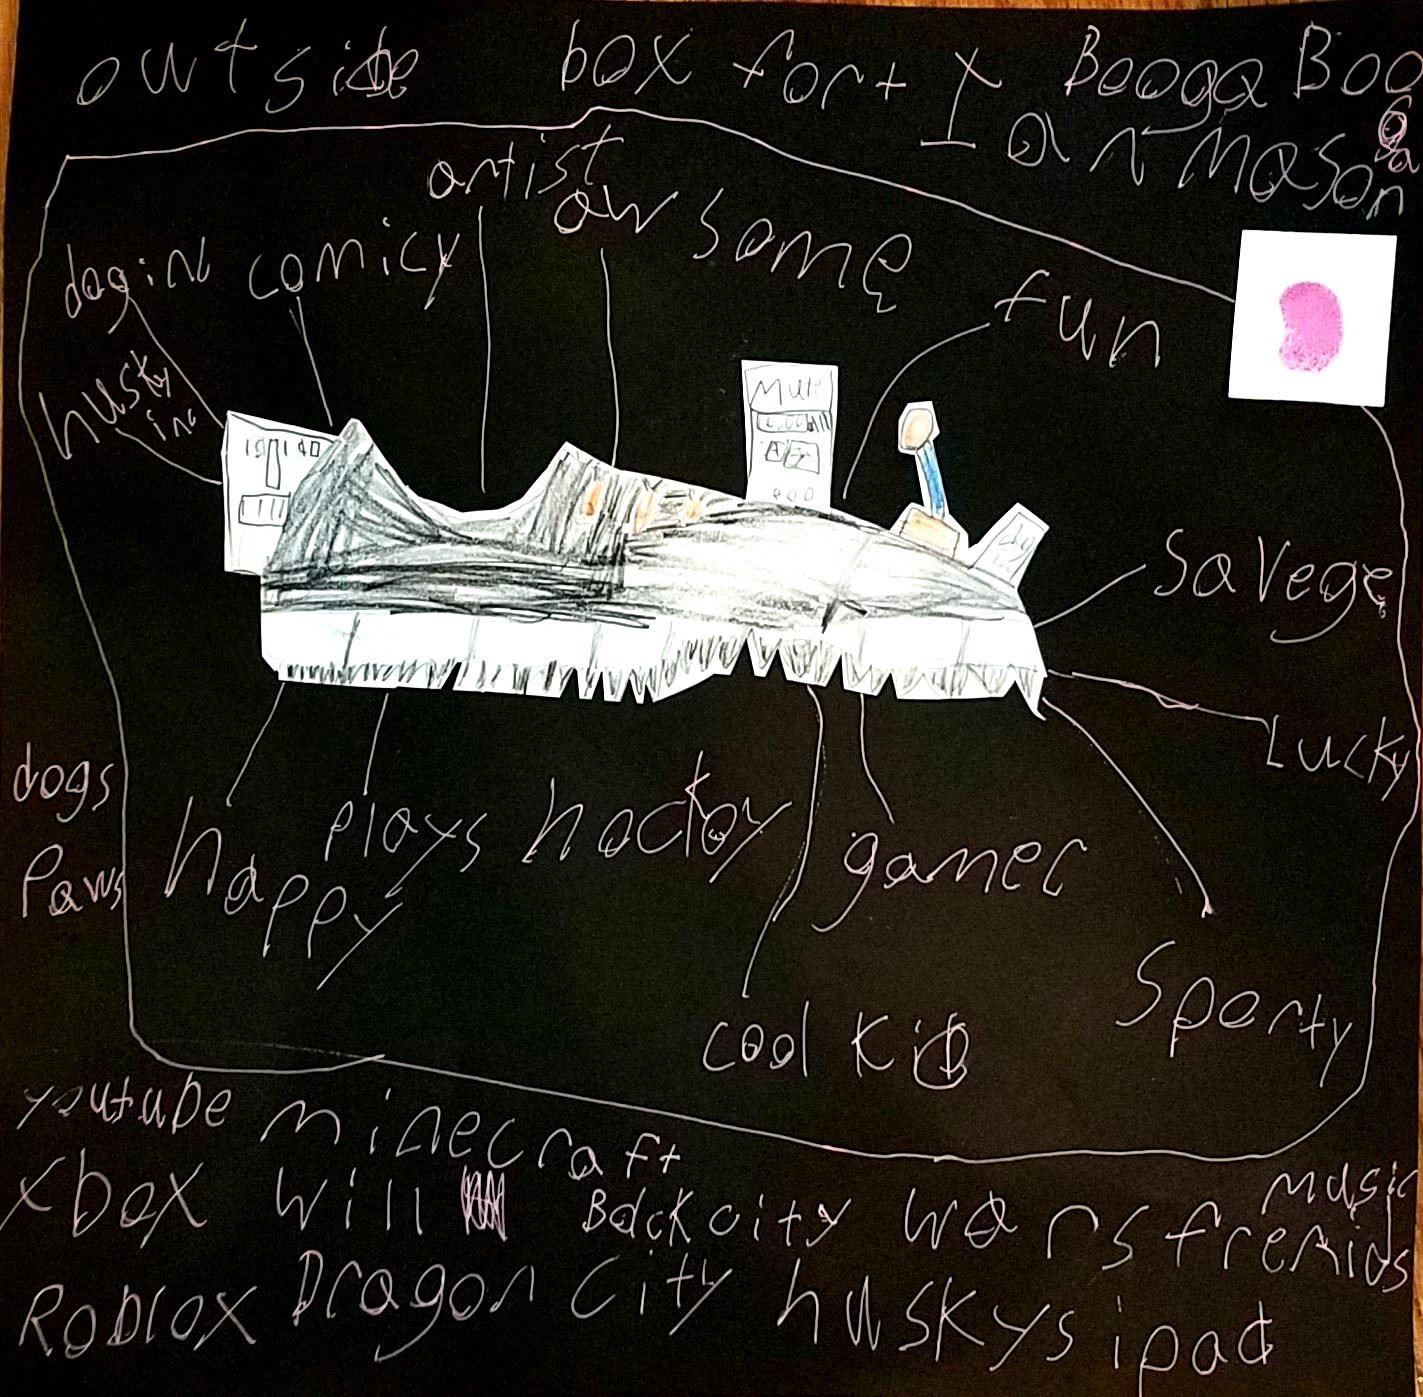 outside box fort I Booga Booga
Ian Mason
artist
awsome
comicy
fun
husky
Mute
Savege
Lucky
dogs
Paws
happy
plays hockoy
gamer
cool Kid
Sporty
youtube minecraft
xbox Will city wars fremids
music
Roblox Dragon City huskys ipad